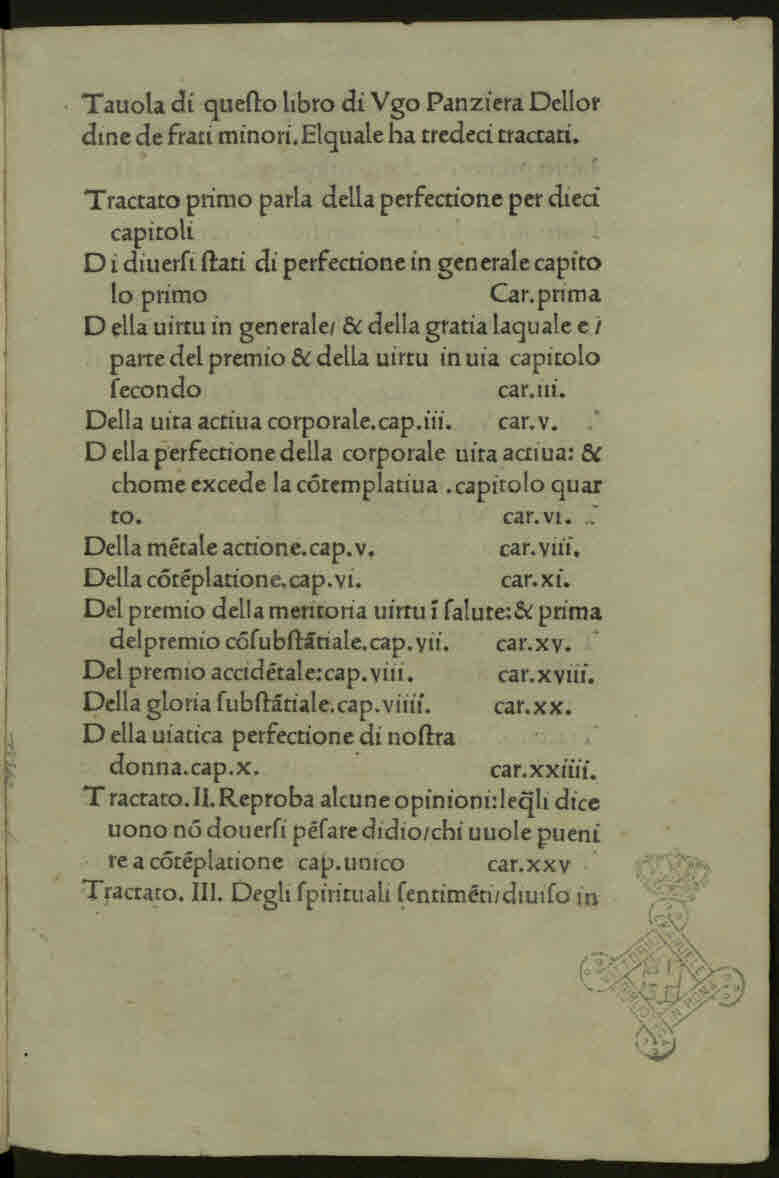 Tauola di queſto libro di Vgo Panziera Dellor
dine de frati minori. Elquale ha tredeci tractati.
Tractato primo parla della perfectione per dieci
capitoli
D i diuerſi ſtati di perfectione in generale capito
lo primo Car.prima
D ella uirtu in generale/ & della gratia laquale e i
parte del premio & della uirtu in uia capitolo
ſecondo car.iii.
Della uita actiua corporale.cap.iii. car.v.
D ella perfectione della corporale uita actiua: &
chome excede la cōtemplatiua .capitolo quar
to. car.vi.
Della mētale actione.cap.v. car.viii.
Della cōtēplatione.cap.vi. car.xi.
Del premio della meritoria uirtu ī ſalute:& prima
delpremio cōſubſtātiale.cap.vii. car.xv.
Del premio accidētale:cap.viii. car.xviii.
Della gloria ſubſtātiale.cap.viiii. car.xx.
D ella uiatica perfectione di noſtra
donna.cap.x. car.xxiiii.
T ractato.II.Reproba alcune opinioni:leq̄li dice
uono nō douerſi pēſare didio/chi uuole pueni
re a cōtēplatione cap.unico car.xxv
Tractato. III. Degli ſpirituali ſentimēti/diuiſo in
VITTORIO EMANUELE